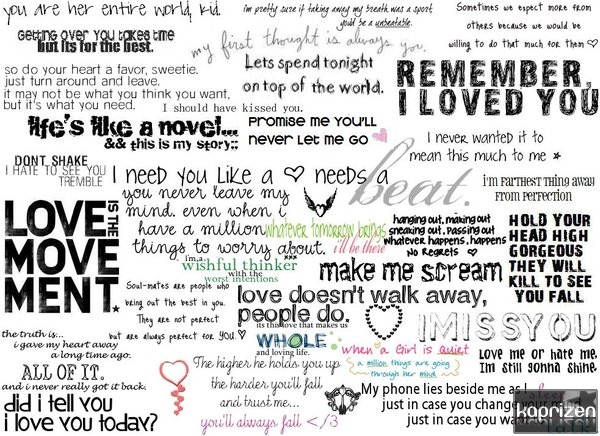 you are her entire world, kid.
i'm pretty sure if taking away my breath was a sport
you'd be a unbeatable.
Sometimes we expect more from
others because we would be
willing to do that much for them ♡
Getting over you takes time
but its for the best.
my first thought is always you.
so do your heart a favor, sweetie.
just turn around and leave.
it may not be what you think you want,
but it's what you need.
Lets spend tonight
on top of the world.
REMEMBER,
I LOVED YOU
I should have kissed you.
life's like a novel...
&& this is my story::
Promise me you'll
never let me go
I never wanted it to
mean this much to me ★
DONT SHAKE
I HATE TO SEE YOU
TREMBLE
I need you like a ♡ needs a
beat.
i'm farthest thing away
from perfection
LOVE
IS THE
MOVE
MENT.
you never leave my
mind. even when
have a million
things to worry about.
whatever tomorrow brings
i'll be there
hanging out, making out
sneaking out, passing out
whatever happens, happens
No Regrets ♡
HOLD YOUR
HEAD HIGH
GORGEOUS
THEY WILL
KILL TO SEE
YOU FALL
i'm a
wishful thinker
with the
worst intentions
make me scream
Soul-mates are people who
bring out the best in you.
They are not perfect
but are always perfect for YOU.♡
love doesn't walk away,
people do.
its this love that makes us
WHOLE
and loving life.
I MISS YOU
the truth is...
i gave my heart away
a long time ago.
ALL OF IT.
and i never really got it back.
when a Girl is Quiet
a million things are going
through her mind
Love me or hate me,
Im still gonna shine.
The higher he holds you up
the harder you'll fall
and trust me...
you'll always fall </3
did i tell you
i love you today?
My phone lies beside me as I
just in case you change your mind
just in case you want
kaprizen